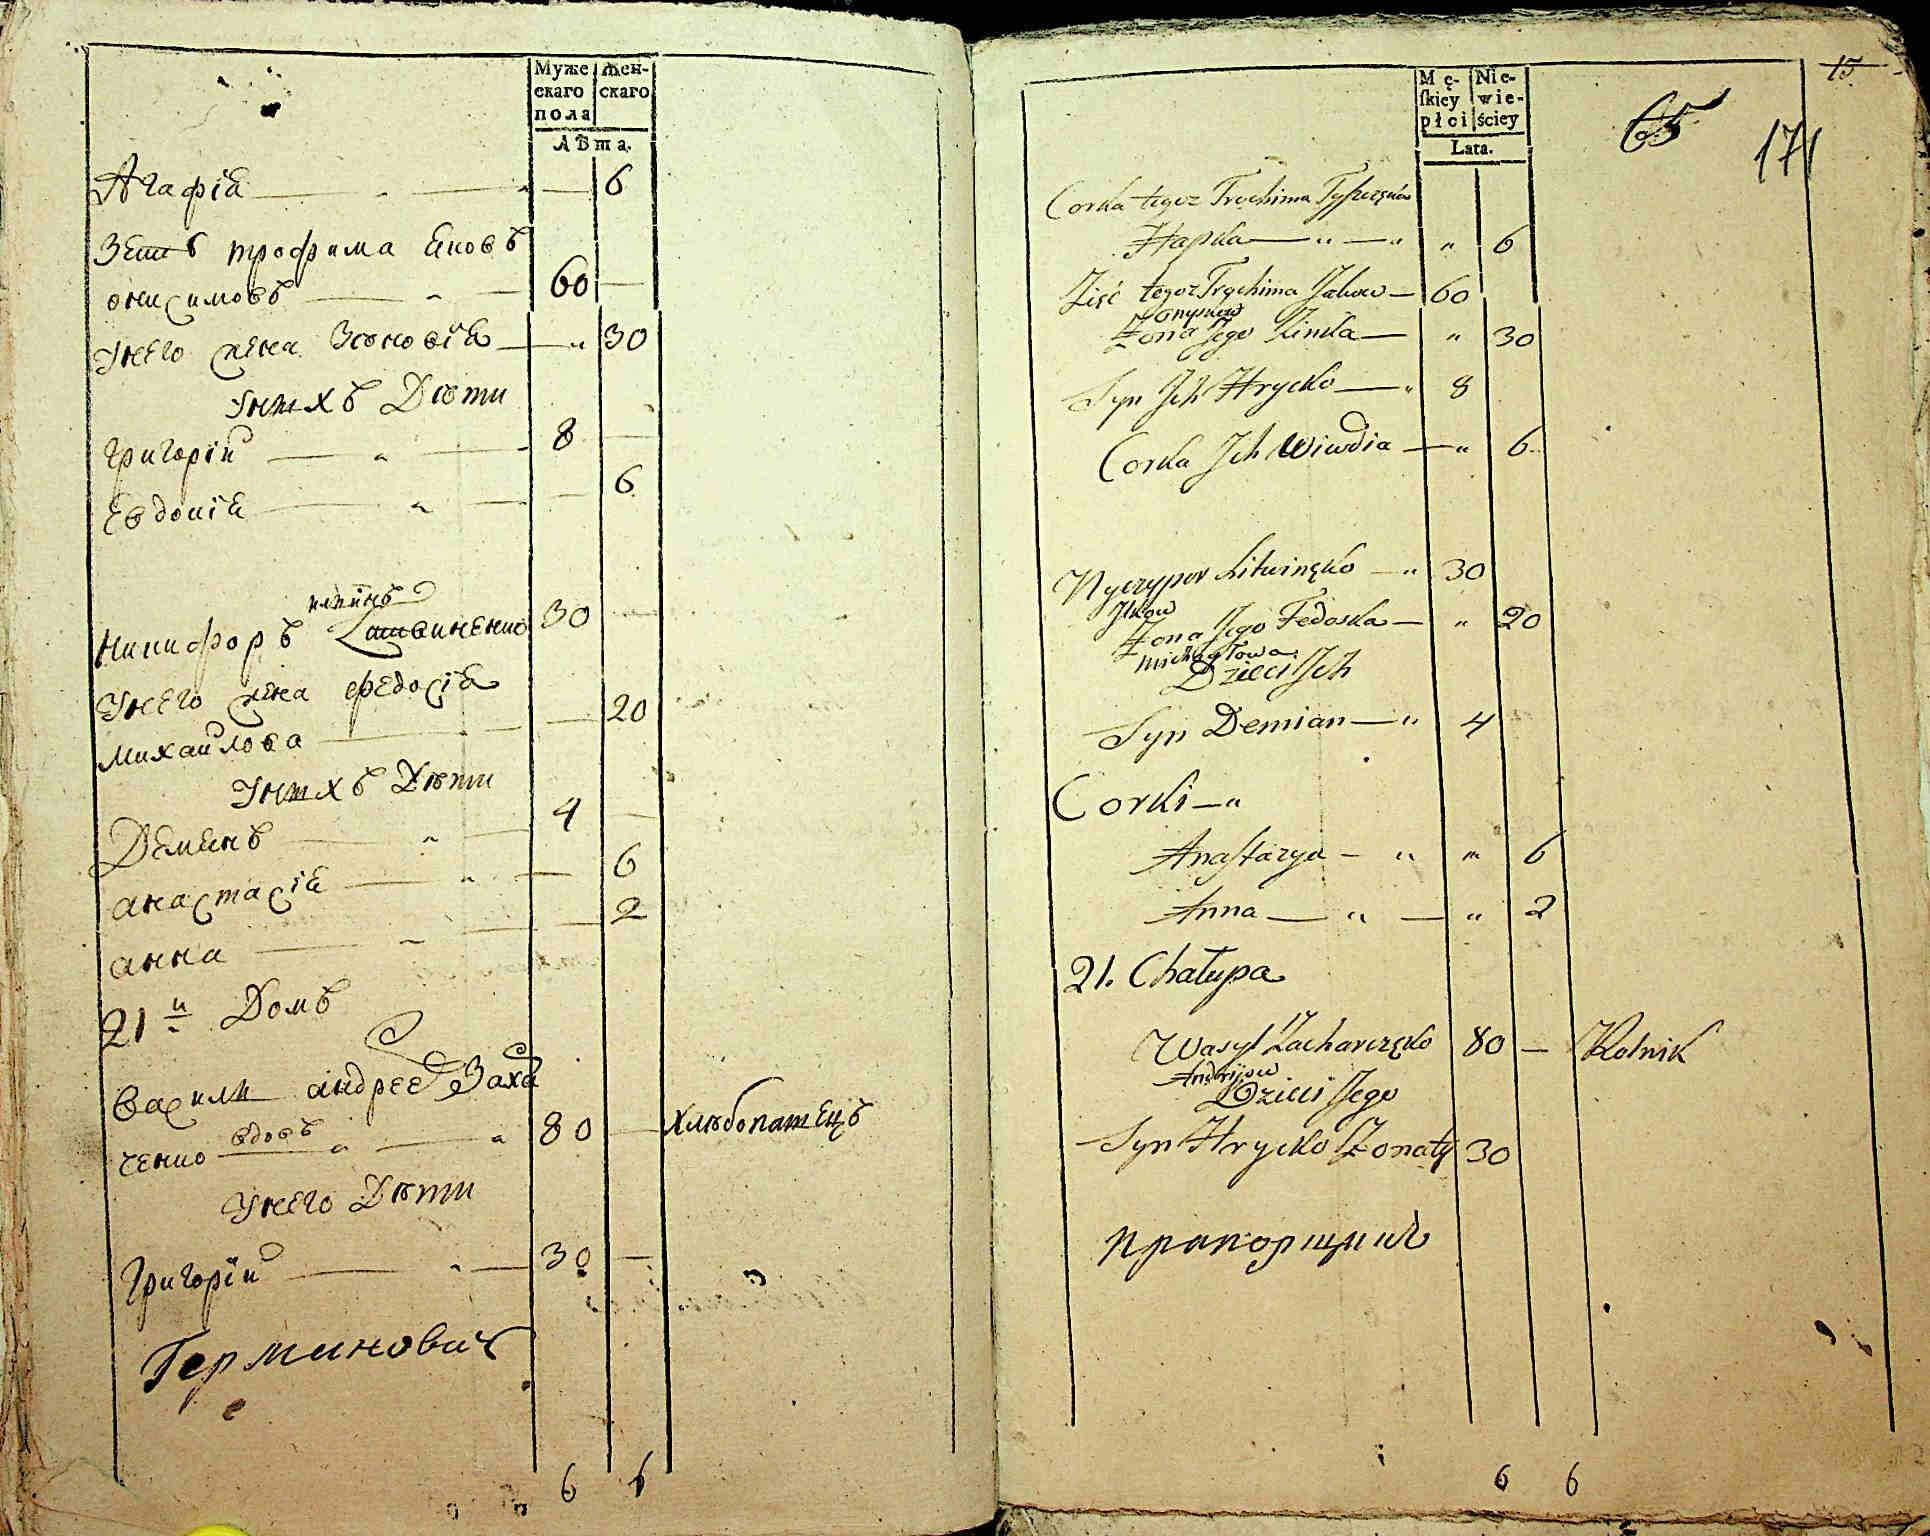 Муже Жен-
скаго скаго
пола
Лѣта.
Агафія 6
Зять трофима Яковъ
онисимовъ 60
Унего жена Зѣновія 30
Унихъ Дѣти
Григорій 8
Евдокія 6
илиинъ
Никифоръ Литвиненко 30
Унего жена Федосія
Михайлова 20
Унихъ Дѣти
Демянъ 4
анастасія 6
анна 2
21й Домъ
Василй андреев Заха
ченко вдовъ 80 Хлѣбопашецъ
Унего Дѣти
Григорій 30
Герминович
6 6
15
Mę- Nie-
skiey wie-
płci ściey
Lata.
65
171
Corka tegoz Trochima
Hapka 6
Zięć tegoz Trochima Jakow 60
Onyskow
Żona Jego Zinka 30
Syn Ich Hrycko 8
Corka Ich Wiwdia 6
Nyczypor Litwinęko 30
Jlkow
Żona Jego Fedoska 20
Michayłowa
Dzieci Ich
Syn Demian 4
Corki
Anastazya 6
Anna 2
21. Chałupa
Wasyl Zacharczęko 80 Rolnik
Andrijow
Dzieci Jego
Syn Hrycko Żonaty 30
прапорщикъ
6 6